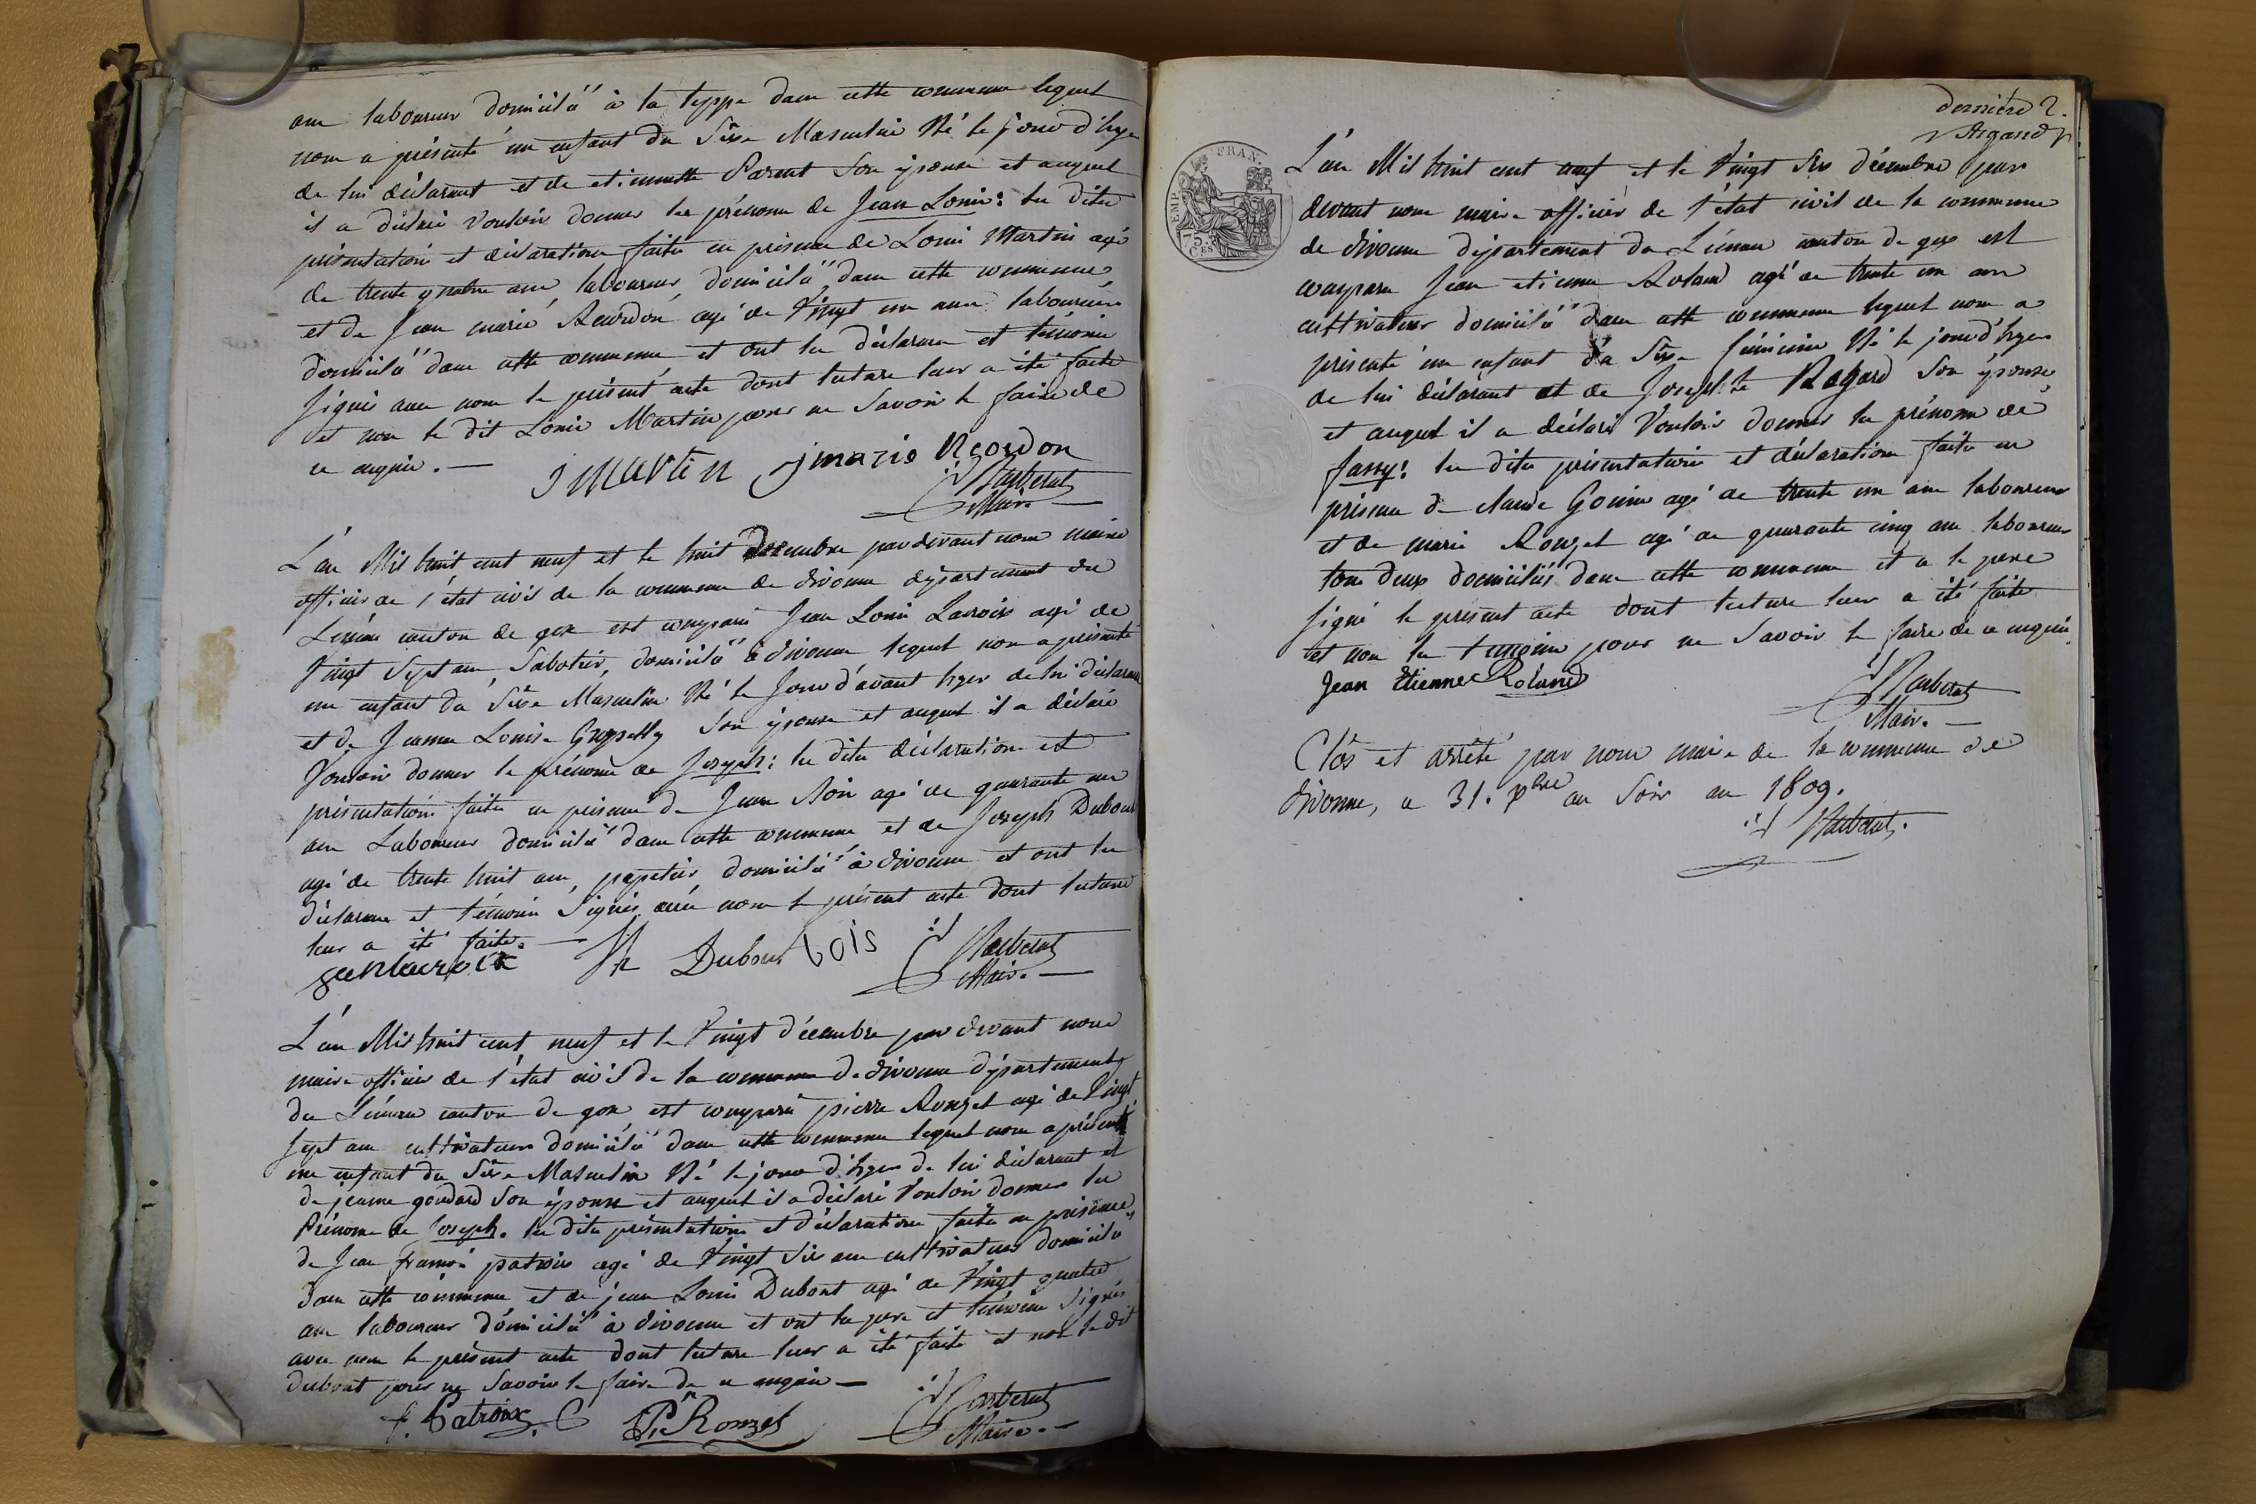 ans laboureur domicilié à la teppe dans cette commune lequel
nous a présenté un enfant du Sexe Masculin Né le jour d'hyer
de lui déclarant et de etiennette Parent Son épouse et auquel
il a déclaré Vouloir donner les prénoms de Jean Louis: les dites
présentation et déclaration faites en présence de Louis Martin agé
de trente quatre ans laboureur, domicilié dans cette commune
et de Jean marie Recordon agé de Vingt un ans laboureur
domicilié dans cette commune et ont les déclarans et témoins
Signés avec nous le présent acte dont lecture leur a été faite
et non le dit Louis Martin pour ne Savoir le faire de
ce enquis. —
J Martin jmarie Recordon
Maire
L'an Mil huit cent neuf et le huit Décembre par devant nous maire
officier de l'état civil de la commune de divonne département du
Léman canton de gex est comparu Jean Louis Lacroix agé de
Vingt Sept ans, Sabotier, domicilié à divonne lequel nous a présenté
un enfant du Sexe Masculin Né le Jour d'avant hyer de lui déclarant
et de Jeanne Louise Son épouse et auquel il a déclaré
Vouloir donner le prénom de Joseph: les dites déclaration et
présentation faites en présence de Jean agé de quarante
ans Laboureur domicilié dans cette commune et de Joseph Dubouis
agé de trente huit ans, papetier domicilié à divonne et ont les
déclarans et témoins Signés avec nous le présent acte dont lecture
leur a été faite. —
Dubouis bois
Maire. —
L'an Mil huit cent neuf et le Vingt décembre par devant nous
maire officier de l'état civil de la commune de divonne département
du Léman canton de gex, est comparu pierre Rouzet agé de Vingt
Sept ans cultivateur domicilié dans cette commune lequel nous a présenté
un enfant du Sexe Masculin Né le jour d'hyer de lui déclarant et
de jeanne goudard Son épouse et auquel il a déclaré Vouloir donner les
Prénoms de Joseph. les dites présentation et déclaration faites en présence
de Jean françois patroix agé de Vingt Six ans cultivateur domicilié
dans cette commune et de jean Louis Dubout agé de Vingt quatre
ans laboureur domicilié à divonne et ont les pere et témoins Signés
avec nous le présent acte dont lecture leur a été faite et non le dit
dubout pour ne Savoir le faire de ce enquis —
f. Patroix
P. Rouzet
Maire. —
dernière 2.
Argand
FRAN.
EMP.
75.
C.ES
L'an Mil huit cent neuf et le Vingt Six décembre par
devant nous maire officier de l'état civil de la commune
de divonne département du Léman canton de gex est
comparu Jean etienne Roland agé de trente un ans
cultivateur domicilié dans cette commune lequel nous a
présenté un enfant du Sexe féminin Né le jour d'hyer
de lui déclarant et de Joseph.te Ragard Son épouse
et auquel il a déclaré Vouloir donner les prénoms de
fanny: les dites présentation et déclaration faites en
présence de claude Gonin agé de trente un ans laboureur
et de marie Rouzet agé de quarante cinq ans laboureur
tous deux domiciliés dans cette commune et a le pere
Signé le présent acte dont lecture leur a été faite
et non les temoins pour ne Savoir le faire de ce enquis.
Jean Etienne Roland
Maire. —
Clos et arrêté par nous maire de la commune de
divonne, ce 31. Xbre au Soir an 1809.